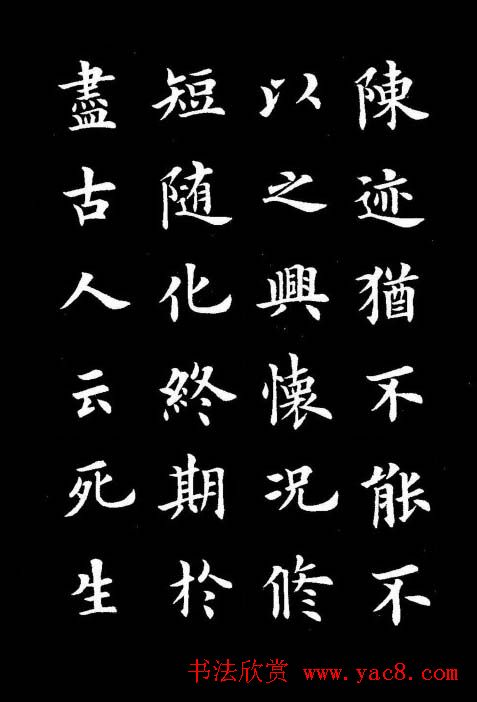 陳迹猶不能不
以之興懷况修
短随化終期於
盡古人云死生
书法欣赏 www.yac8.com